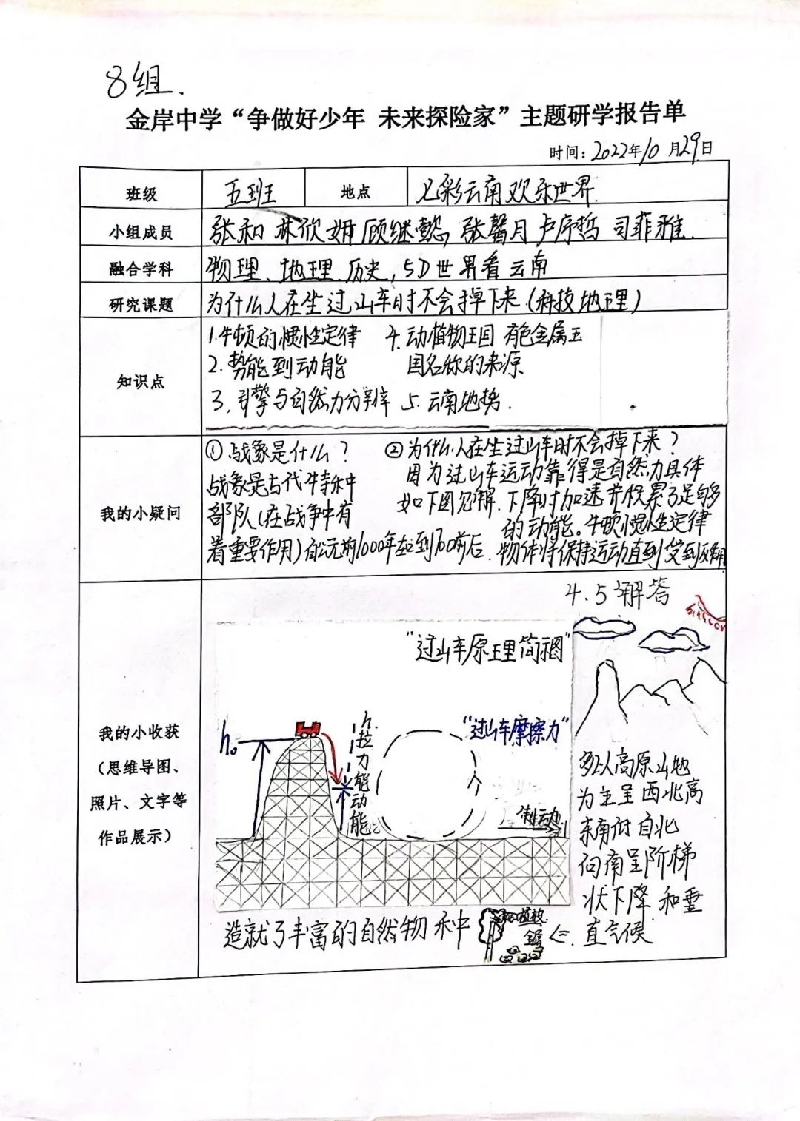 8组.
金岸中学“争做好少年 未来探险家”主题研学报告单
时间:2022年10月29日
班级 五班 地点 七彩云南欢乐世界
小组成员 张和 林欣妍 顾继懿, 张馨月 卢序哲 司菲雅
融合学科 物理、地理 历史, 5D世界看云南
研究课题 为什么人在坐过山车时不会掉下来(科技 地理)
知识点
1.牛顿的惯性定律
2.势能到动能
3.引擎与自然力分辨
4.动植物王国 有色金属王
国名称的来源
5.云南地势.
我的小疑问
①战象是什么?
战象是古代特种
部队(在战争中有
着重要作用)前公元前1000年左到100前后.
②为什么人在坐过山车时不会掉下来?
因为过山车运动靠得是自然力具体
如下图见解.下降时加速并积累了足够
的动能。牛顿惯性定律
物体将保持运动直到受到反作用
我的小收获
(思维导图、
照片、文字等
作品展示)
4.5解答
“过山车原王里简图”
“过山车摩擦力”
h。
h.
拉力能动能
制动
多以高原山地
为主呈西北高
东南低自北
向南呈阶梯
状下降 和垂
直气候
造就了丰富的自然物种